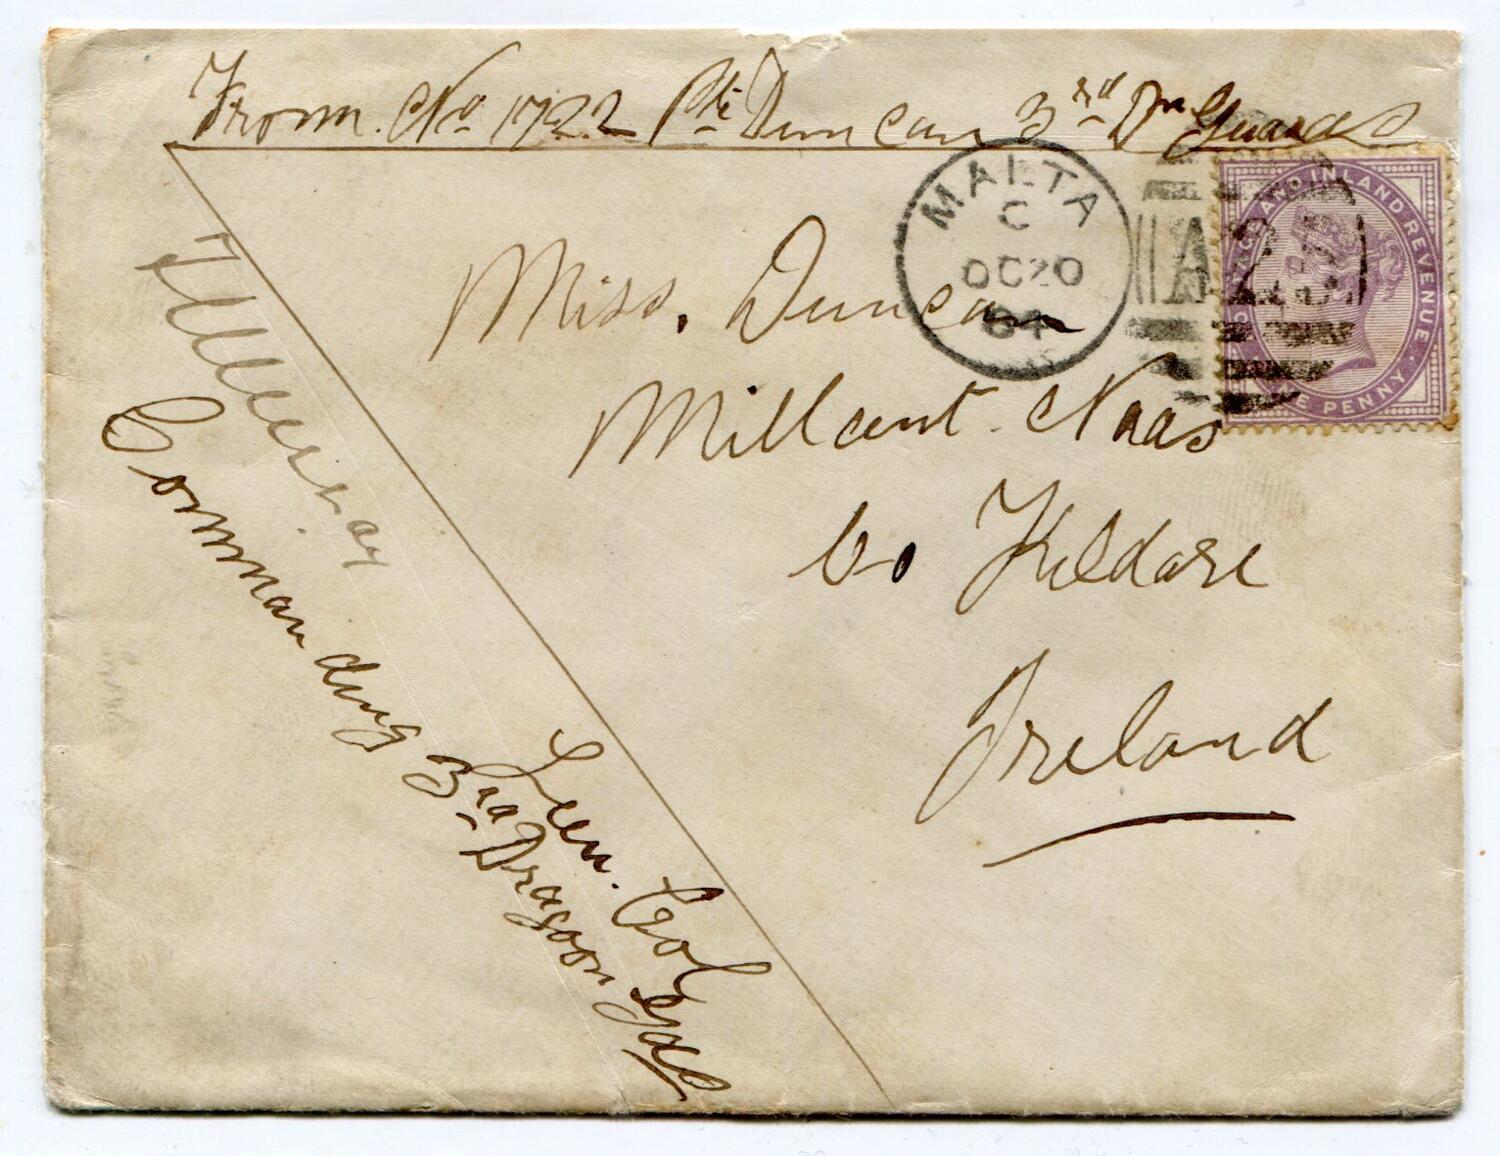 From. No 1722 Pte Duncan 3rd Dn Guards
MALTA
C
OC 20
84
A25
POSTAGE AND INLAND REVENUE
ONE PENNY
Miss. Duncan
Millcent. Naas
Co Kildare
Ireland
Lieu. Col
Commanding 3rd Dragoon Gds